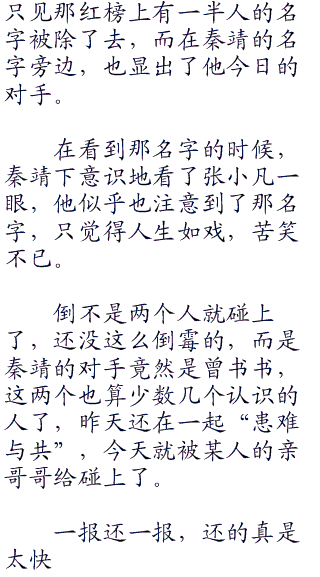 只见那红榜上有一半人的名
字被除了去，而在秦靖的名
字旁边，也显出了他今日的
对手。
在看到那名字的时候，
秦靖下意识地看了张小凡一
眼，他似乎也注意到了那名
字，只觉得人生如戏，苦笑
不已。
倒不是两个人就碰上
了，还没这么倒霉的，而是
秦靖的对手竟然是曾书书，
这两个也算少数几个认识的
人了，昨天还在一起“患难
与共”，今天就被某人的亲
哥哥给碰上了。
一报还一报，还的真是
太快